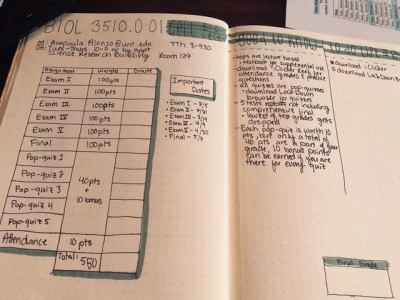 BIOL 3510.001
CELL BIO
Anapaula.Alonso@unt.edu
TTh 8-930
Science Research Building
Room 129
Assignment Weight Grade
Exam I 100pts
Exam II 100pts
Exam III 100pts
Exam IV 100pts
Exam V 100pts
Final 100pts
Pop-quiz 1
Pop-quiz 2
Pop-quiz 3
Pop-quiz 4
Pop-quiz 5
40pts
+
10 bonus
Attendance 10 pts
Total: 550
Important
Dates
• Exam I -
• Exam II -
• Exam III -
• Exam IV -
• Exam V -
• Final -
• tests are lecture based
- textbook for supplemental use
• download iClicker Reef for
attendance grades & practice
questions
• all quizzes are pop-quizzes
- download Lock Down
browser for quizzes
• 5 tests
comprehensive final
- lowest of test grades gets
dropped
• Each pop-quiz is worth 10
pts, but only a total of
40 pts are a part of your
grade, 10 bonus points
can be earned if you are
there for every quiz
download iClicker
download LockDown
Final Grade